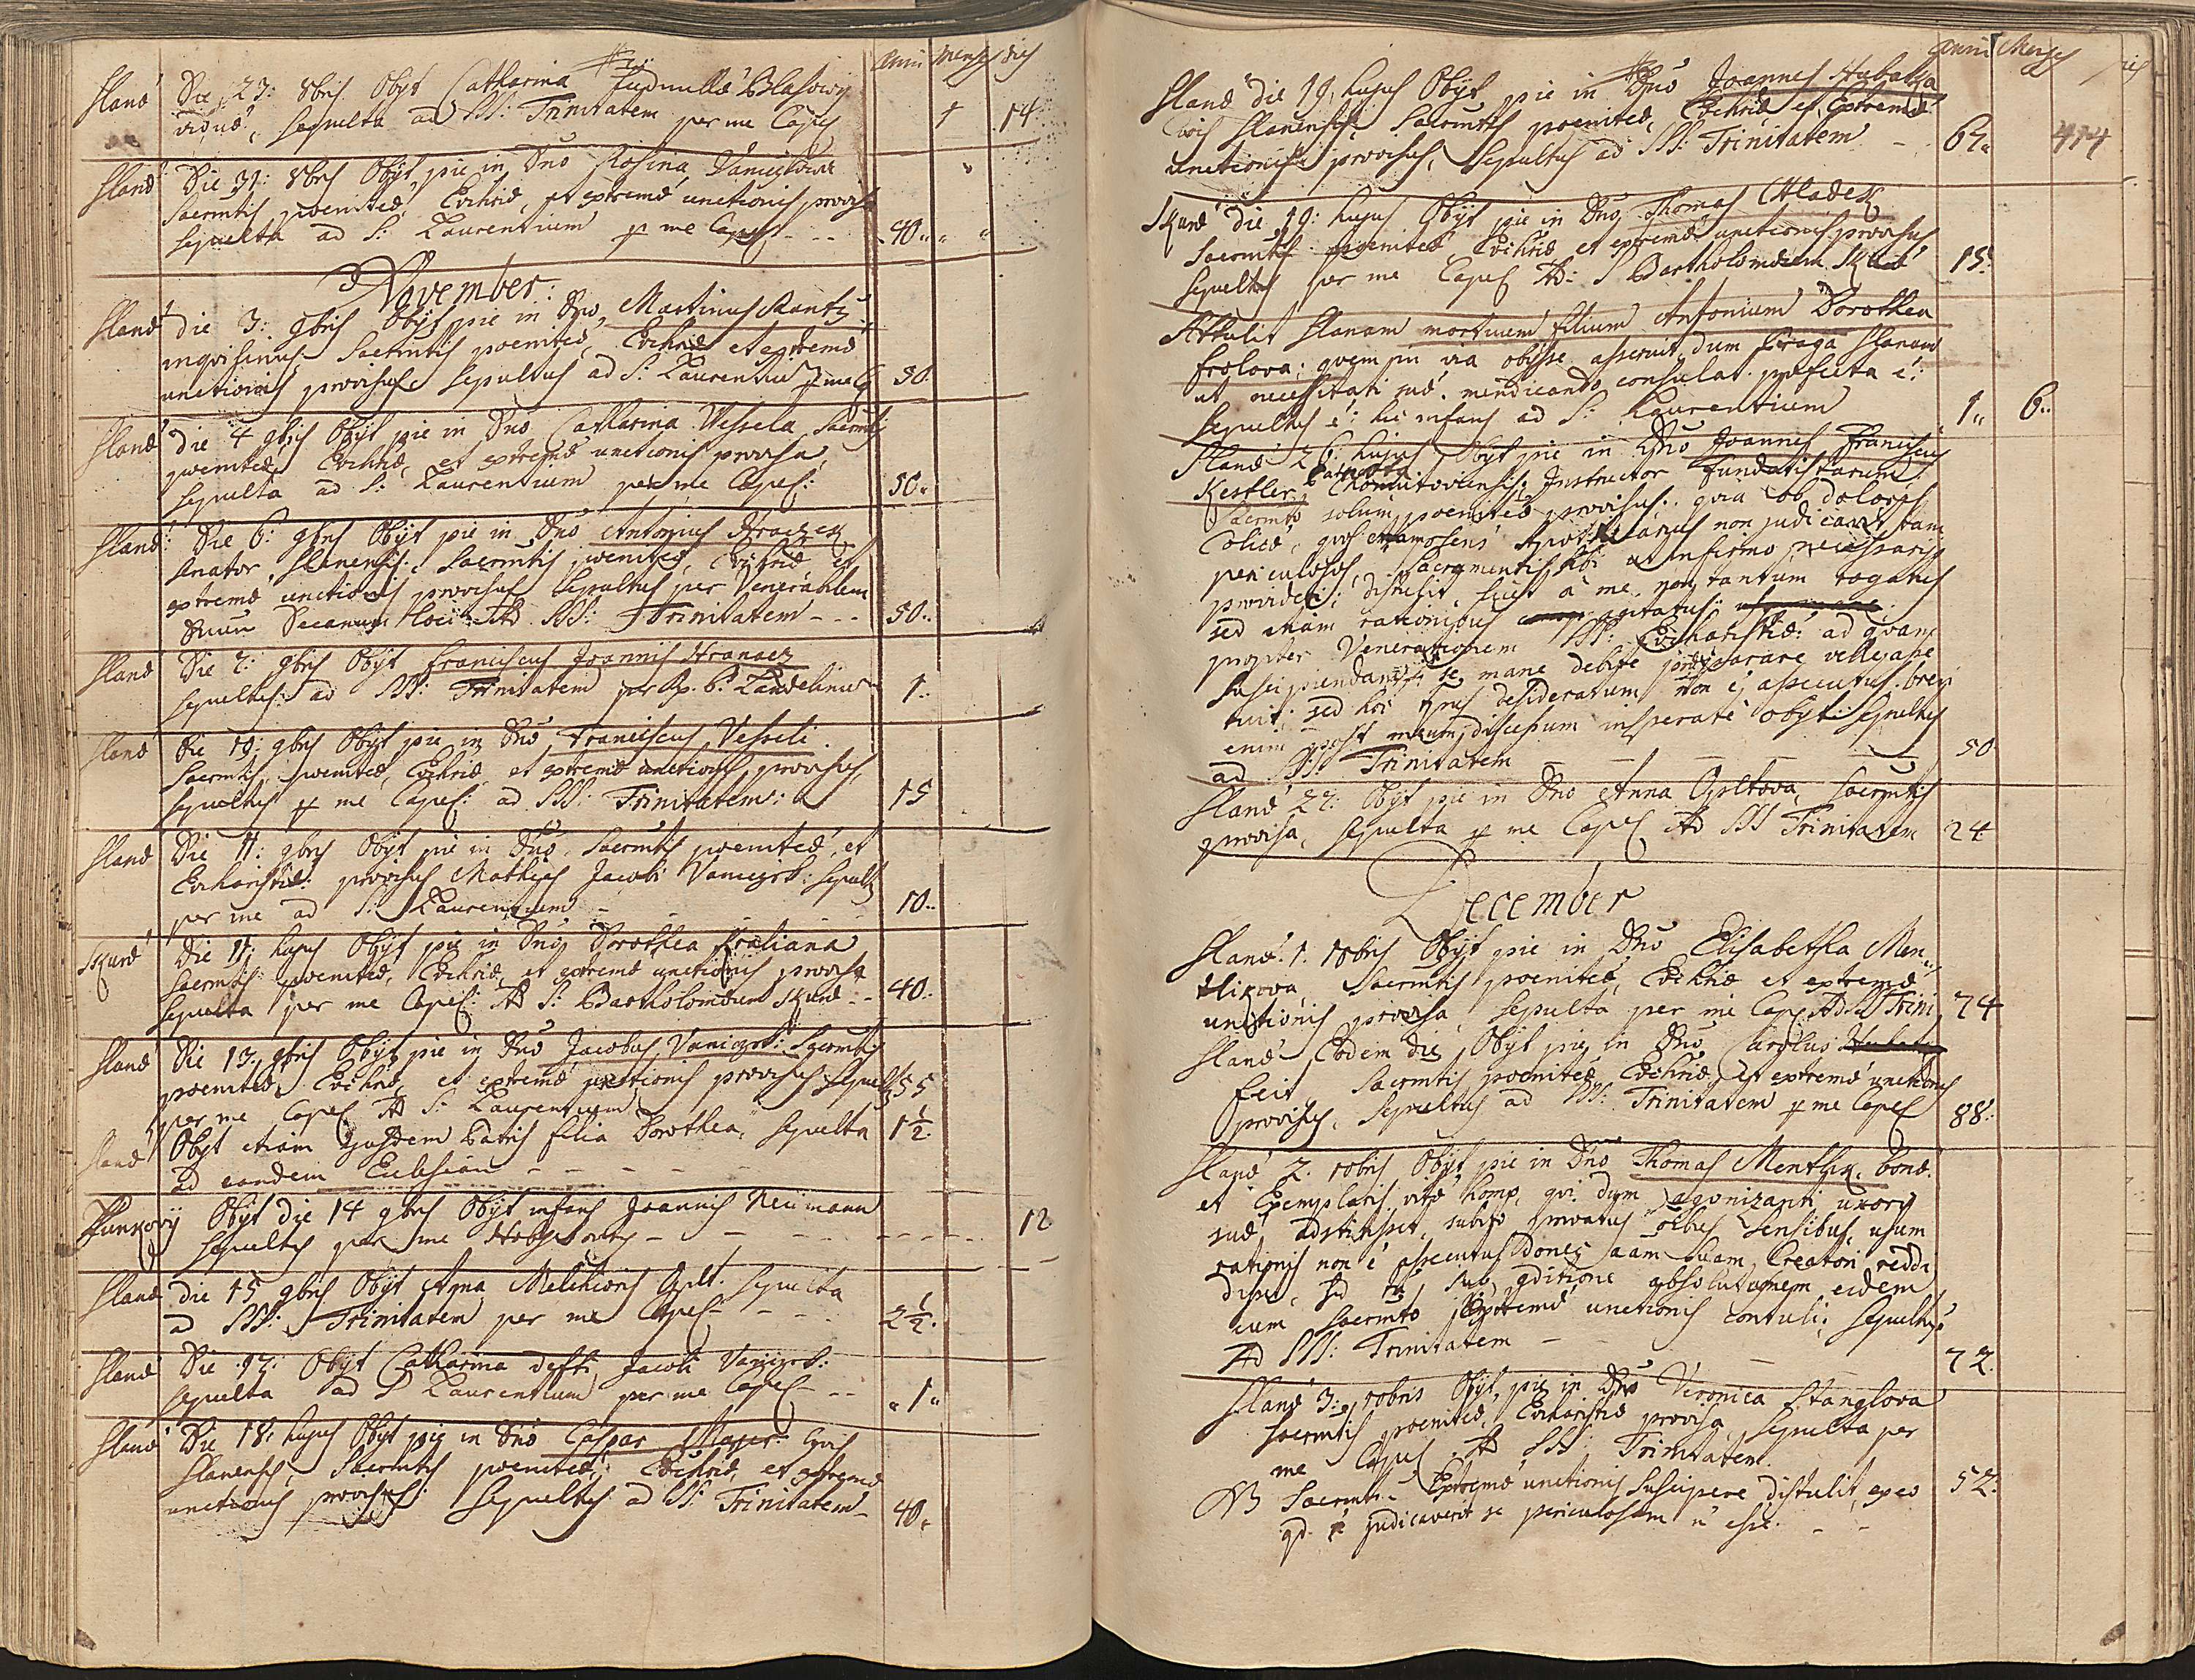 Anni Menses dies
Slanæ Die 27: 8bris Obÿt Catharina Ludmillæ Blasowy
viduæ, sepulta ad SS: Trinitatem per me Capel 1 14
Slanæ Die 31: 8bris Obÿt pie in Dno Rosina
Sacrmtis poenitæ, Eŭchriæ, et extremæ unctionis provisa
sepulta ad S: Laurentium p me Capel 40
November:
Slanæ die 3: 9bris Obÿt pie in Dno, Martinus Rantz
inqvilinus, Sacrmtis poenitæ, Eŭchriæ et extremæ
unctionis provisus. sepultus ad S: Laurentiu p me C 50
Slanæ die 4 9bris Obÿt pie in Dno Catharina Wessela Sacrmtis
poenitæ, Eŭchriæ, et extremæ unctionis provisa,
sepulta ad S: Laurentium per me Capel: 50
Slanæ: Die 6: 9bris Obÿt pie in Dno Antonius
Senator Slanensis. Sacrmtis poenitæ, Eŭchriæ et
extremæ unctionis provisus sepultus per Venerabilem
Dnum Decanum Loci Ad SSS: Trinitatem 50
Slanæ Die 7: 9bris Obÿt Franciscus Joannis Hranacz
sepultus: ad SSS: Trinitatem per R. P. Landelinu 1
Slanæ die 10: 9bris Obÿt pie in Dno Franciscus Vesseli
Sacrmtis, poenitæ, Eŭchriæ, et extremæ unctionis provisus,
sepultus p me Capel: ad SSS: Trinitatem: 15
Slanæ Die 11: 9bris Obÿt pie in Dno, Sacrmtis poenitæ, et
Eŭcharistiæ: provisus Mathias Jacobi Vaniczek: sepult9
per me ad S: Laurentium 10
Die 11: hujus Obÿt pie in Dno, Dorothea
Sacrmtis poenitæ, Eŭchriæ, et extremæ unctionis provisa
sepulta per me Capel: Ad S: Bartholomæum 40
Slanæ Die 13, 9bris Obÿt pie in Dno Jacobus Vaniczek: Sacrmtis
poenitæ, Eŭchriæ, et extremæ unctionis provisus sepult9 55
per me Capel Ad S: Laurentium
Slanæ Obÿt etiam ejusdem Patris filia Dorothea, sepulta 1½
ad eandem Eclesiam
Obÿt die 14 9bris Obÿt infans Joannis Neümann
sepultus per me 12
Slanæ die 15 9bris Obÿt Anna Melchioris Oplt. sepulta
ad SSS: Trinitatem per me Capel 2½
Slanæ Die 17: Obÿt Catharina defti Jacobi Vaniczek:
sepulta ad S Laurentium per me Capel 1
Slanæ Die 18, hujus Obÿt pie in Dno Caspar Majer: Civis
Slanensis, Sacrmtis poenitæ, Eŭchriæ, et extremæ
unctionis provisus: sepultus ad SS: Trinitatem 40
Anni Menses dies
Slanæ die 19, hujus Obÿt pie in Dno Joannes Hubatka
Civis Slanensis, Sacrmtis poenitæ, Eŭchriæ, et Extremæ
unctionis provisus, sepultus ad SSS: Trinitatem 67 414
die, 19: hujus Obÿt pie in Dno Thomas Hladek
Sacrmtis poenitæ Eŭchriæ et extremæ unctionis provisus
sepultus per me Capel Ad: S Bartholomæum 15
Attulit Slanam mortuum filium Antonium Dorothea
Frolova: quem in via obÿsse asseruit, dum Praga Slanam
ut necessitati suæ. mendicando consulat. profecta é:
sepultus é: hic infans ad S: Laurentium 1 6
Slanæ 26: hujus Obÿt pie in Dno Joannes Franciscus
Kestler, Chomutoviensis, Instructor Fundatistarum
Sacrmto solum poenitæ provisus: qvia ob dolores
Colicæ, qvos etiam Apothecarius non judicavit tam
periculosos, Sacramentis sibi ut infirmo necessarijs
provideri, distulit, fuit à me, non tantum rogatus
sed etiam rationibus agitatus;
propter Venerationem SS: Eŭcharistiæ: ad qvam
suscipiendam se, mane debite præparare velle ajebat
sed hoc desideratum non é, assecutus. brevi
enim post meum discessum insperate obÿt. sepultus
ad SS: Trinitatem 50
Slanæ 27: Obÿt pie in Dno Anna Opltova, Sacrmtis
provisa, sepulta p me Capel Ad SSS Trinitatem 24
December
Slanæ. 1. 10bris Obÿt pie in Dno Elisabetha Men
tlikova, Sacrmtis poenitæ, Eŭchriæ et extremæ
unctionis provisa, sepulta per me Cap. Ad SS Trini 74
Slanæ Eodem die Obÿt pie in Dno Carolus
Feit Sacrmtis poenitæ Eŭchriæ, et extremæ unctionis
provisus, sepultus ad SS: Trinitatem p me Capel 88
Slanæ 2. 10bris Obÿt pie in Dno Thomas Menthik. bonæ.
et Exemplaris vitæ homo, qvi dum agonizanti uxori
suæ adstitisset, subito privatus oibus sensibus, usum
rationis non é assecutus donec aam suam Creatori reddi
disset, sed sub gditione absolutionem eidem
cum Sacrmto Extremæ unctionis contuli: sepultus
Ad SSS: Trinitatem 72
Slanæ 3: 10bris Obÿt pie in Dno Veronica Stanglova
Sacrmtis poenitæ, Eŭcharistiæ provisa, sepulta per
me Capel Ad SSS: Trinitatem
NB Sacrmtu Extremæ unctionis suscipere distulit, ex eo 52
qd judicaverit se periculosam n esse.